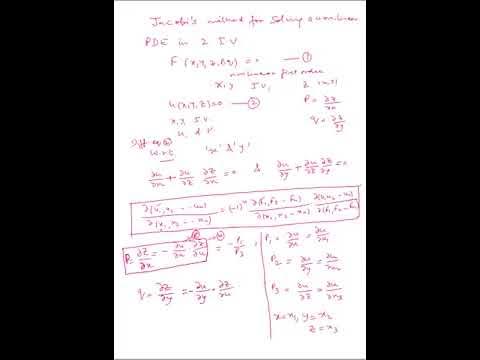 Jacobi's method for Solving a nonlinear
PDE in 2 I V
F (x, y, z, p, q) = 0 — ①
nonlinear first order
x, y I.V, z (D.V)
u(x, y, z) = 0 — ② P = ∂z/∂x
x, y I.V. q = ∂z/∂y
u, d V
Diff eq ②
w.r.t 'x' & 'y'
∂u/∂x + ∂u/∂z ∂z/∂x = 0 & ∂u/∂y + ∂u/∂z ∂z/∂y = 0
∂(u₁, u₂ --- uₙ)/∂(x₁, x₂ --- xₙ) = (-1)ⁿ ∂(F₁, F₂ -- Fₙ)/∂(x₁, x₂ -- xₙ) ∂(u₁, u₂ -- uₙ)/∂(F₁, F₂ -- Fₙ)
P = ∂z/∂x = - ∂u/∂x ∂z/∂u = - P₁/P₃
q = ∂z/∂y = - ∂u/∂y · ∂z/∂u
P₁ = ∂u/∂x = ∂u/∂x₁
P₂ = ∂u/∂y = ∂u/∂x₂
P₃ = ∂u/∂z = ∂u/∂x₃
x = x₁, y = x₂
z = x₃